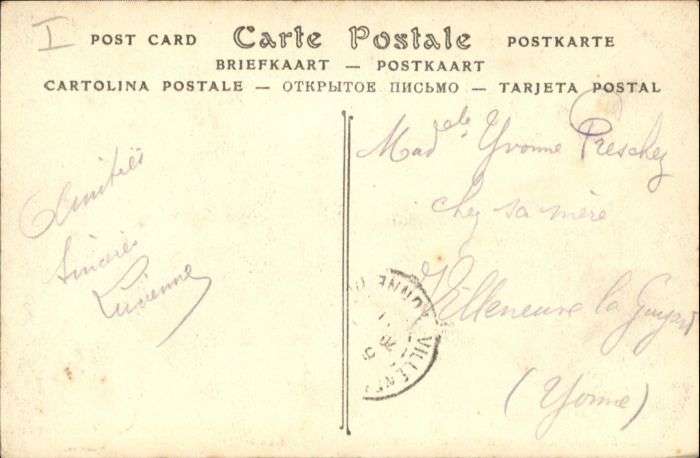 I
POST CARD Carte Postale POSTKARTE
BRIEFKAART — POSTKAART
CARTOLINA POSTALE — ОТКРЫТОЕ ПИСЬМО — TARJETA POSTAL
Amitiés
sincères
Lucienne
Madelle Yvonne Preschez
chez sa mère
Villeneuve la Guyard
(Yonne)
VILLENE
YONNE